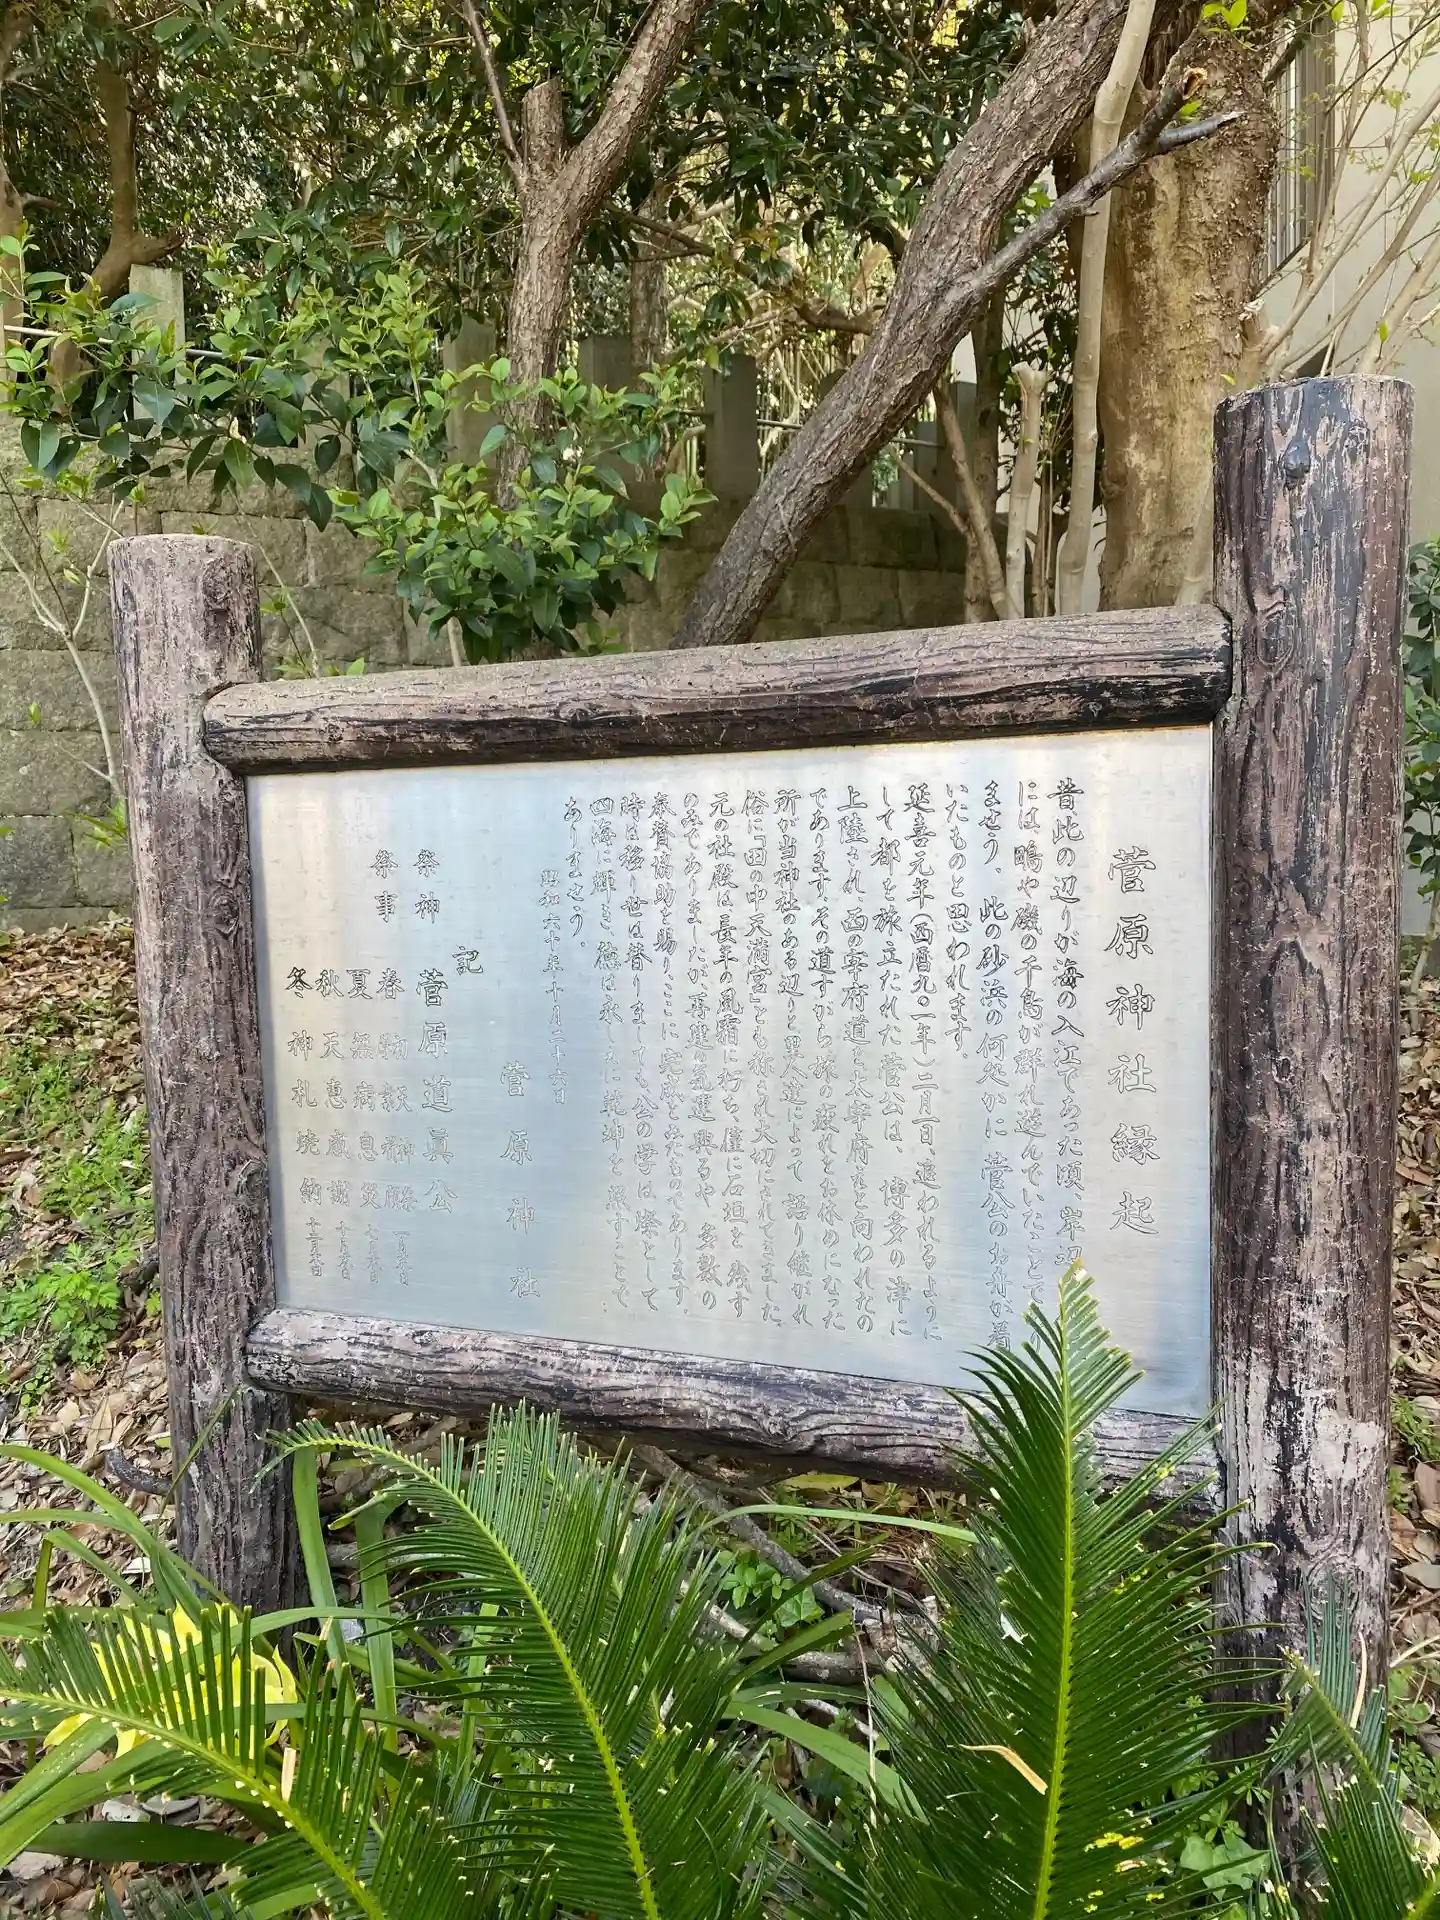 菅原神社縁起
昔此の辺りが海の入江であった頃、岸辺
には、鴫や磯の千鳥が群れ遊んでいたことで
ませう。此の砂浜の何処かに菅公のお舟が着
いたものと思われます。
延喜元年(西暦九〇一年)二月一日、追われるように
して都を旅立たれた菅公は、博多の津に
上陸され、西の宰府道を太宰府えと向われたの
であります。その道すがら旅の疲れをお休めになった
所が当神社のある辺りと里人達によって語り継がれ
俗に「田の中天満宮」とも称され大切にされてきました。
元の社殿は、長年の風霜に朽ち、僅に石垣を残す
のみでありましたが、再建の気運興るや多数の
奉賛協助を賜り、ここに完成をみたものであります。
時は移り世は替りましても公の学は燦として
四海に輝き、徳は永しえに乾坤を照すことで
ありませう。
昭和六十年十月二十六日
菅原神社
記
祭神 菅原道真公
祭事 春
夏 無病息災 七月
秋 天恵感謝
冬 神札焼納